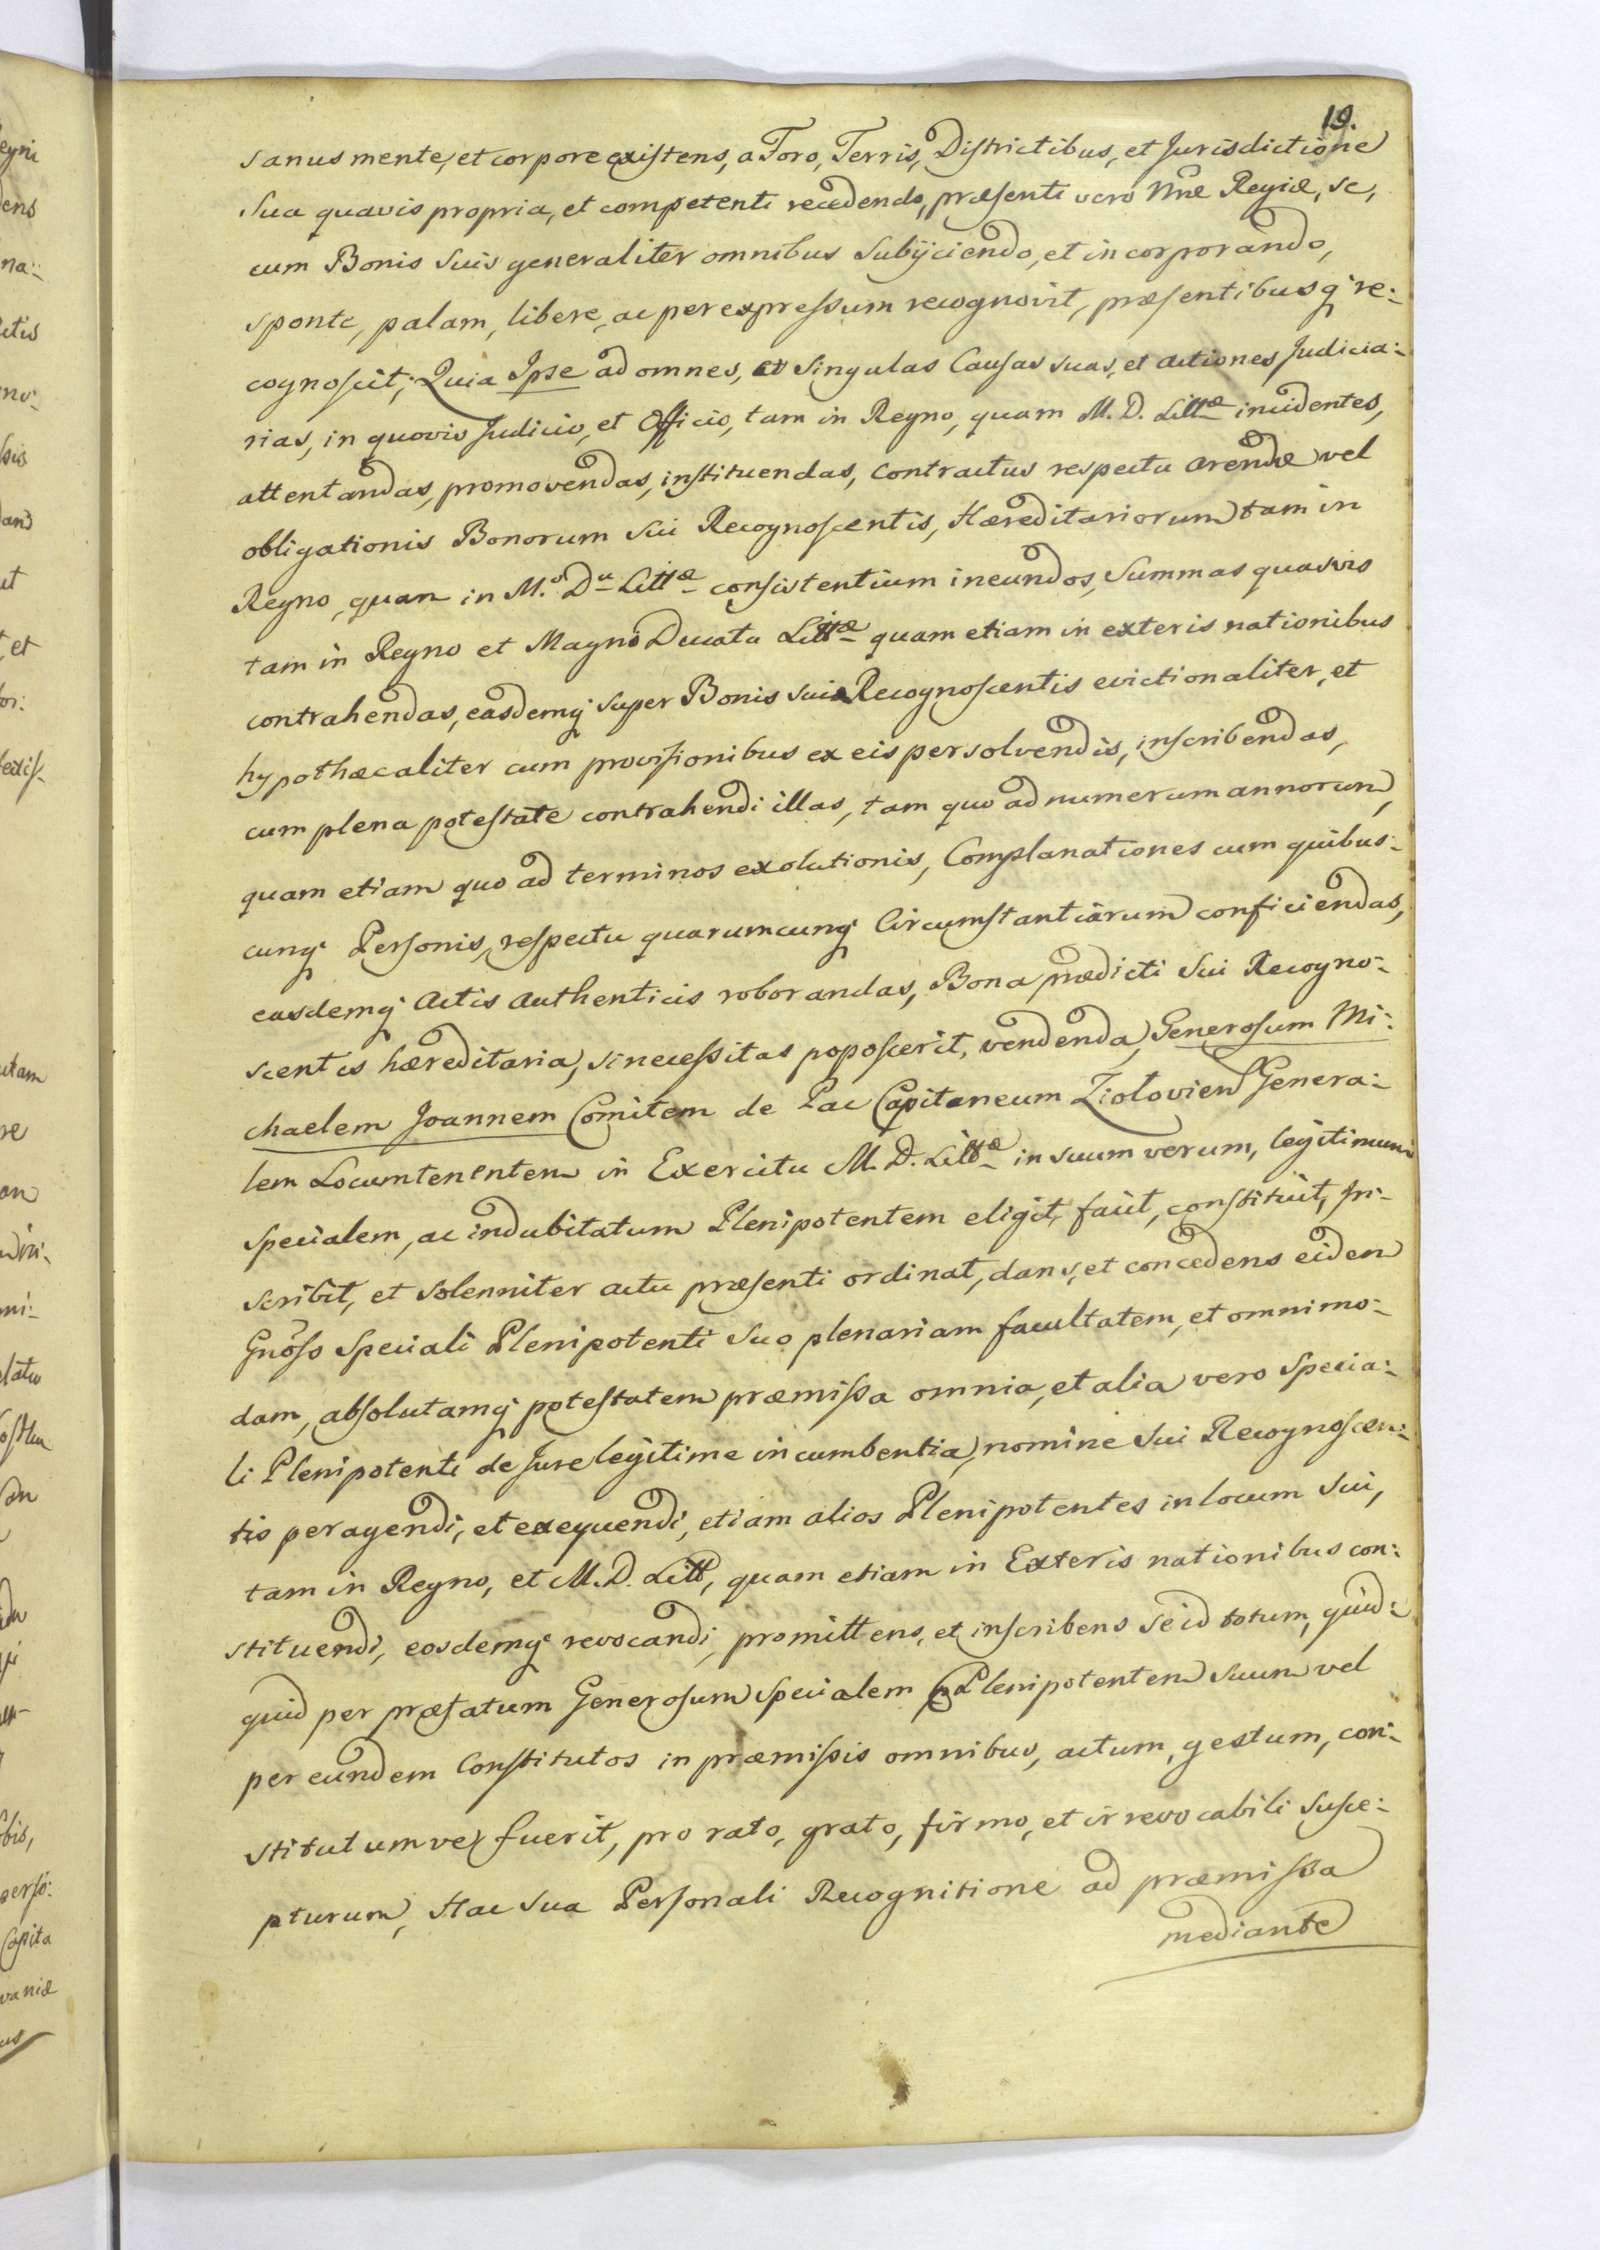 19.
sanus mente, et corpore existens, a Foro, Terris, Districtibus, et Jurisdictione
sua quavis propria, et competenti recedendo, præsenti vero Mñæ Regiæ, se,
cum Bonis suis generaliter omnibus subijciendo, et incorporando,
sponte, palam, libere, ac per expressum recognovit, præsentibusq́ re:
cognoscit; Quia Ipse ad omnes, et singulas Causas suas, et actiones Judicia:
rias, in quovis Judicio, et Officio, tam in Regno, quam M. D. Littæ incidentes,
attentandas, promovendas, instituendas, contractus respectu arendæ vel
obligationis Bonorum sui Recognoscentis, Hæreditariorum tam in
Regno, quam in M.o Du Littæ consistentium ineundos, Summas quasvis
tam in Regno et Magno Ducatu Littæ quam etiam in exteris nationibus
contrahendas, easdemq́ super Bonis sui Recognoscentis evictionaliter, et
hypothæcaliter cum provisionibus ex eis persolvendis, inscribendas,
cum plena potestate contrahendi illas, tam quo ad numerum annorum,
quam etiam quo ad terminos exolutionis, Complanationes cum quibus:
cunq́ Personis, respectu quarumcunq́ Circumstantiarum conficiendas,
easdemq́ Actis Authenticis roborandas, Bona prædicti sui Recogno:
scentis hæreditaria, si necessitas poposcerit, vendenda, Generosum Mi:
chaelem Joannem Comitem de Pac Capitaneum Ziotovien Genera:
lem Locumtenentem in Exercitu M. D. Littæ in suum verum, legitimum
specialem, ac indubitatum Plenipotentem eligit, facit, constituit, in:
scribit, et solenniter actu præsenti ordinat, dans, et concedens eidem
Gnõso speciali Plenipotenti suo plenariam facultatem, et omnimo:
dam, absolutamq́ potestatem præmissa omnia, et alia vero specia:
li Plenipotenti de Jure legitime incumbentia, nomine sui Recognoscen:
tis peragendi, et exequendi, etiam alios Plenipotentes in locum sui,
tam in Regno, et M. D. Litt, quam etiam in Exteris nationibus con:
stituendi, eosdemq́ revocandi, promittens, et inscribens se id totum, quid:
quid per præfatum Generosum specialem Plenipotentem suum vel
per eundem Constitutos in præmissis omnibus, actum, gestum, con:
stitutumve fuerit, pro rato, grato, firmo, et irrevocabili susce:
pturum, Hac sua Personali Recognitione ad præmissa
mediante